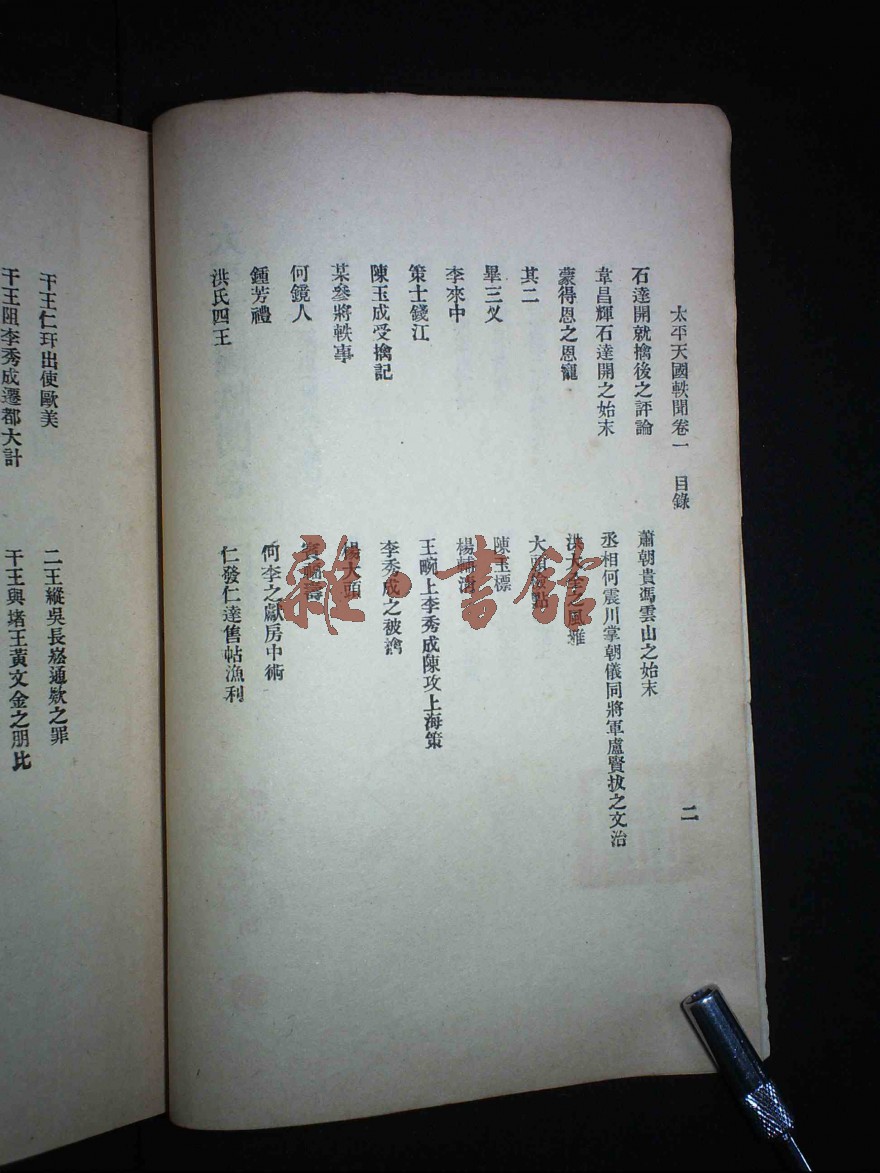 太平天國軼聞卷一　目錄
二
石達開就擒後之評論
蕭朝貴馮雲山之始末
韋昌輝石達開之始末
丞相何震川掌朝儀同將軍盧賢拔之文治
蒙得恩之恩寵
洪大全之風雅
其二
大頭檢點
畢三义
陳玉標
李來中
楊輔清
策士錢江
王畹上李秀成陳攻上海策
陳玉成受擒記
李秀成之被擒
某參將軼事
楊大頭
何鏡人
鍾芳禮
何李之獻房中術
洪氏四王
仁發仁達售帖漁利
干王仁玕出使歐美
二王縱吳長崧通欵之罪
干王阻李秀成遷都大計
干王與堵王黃文金之朋比
雜·書館